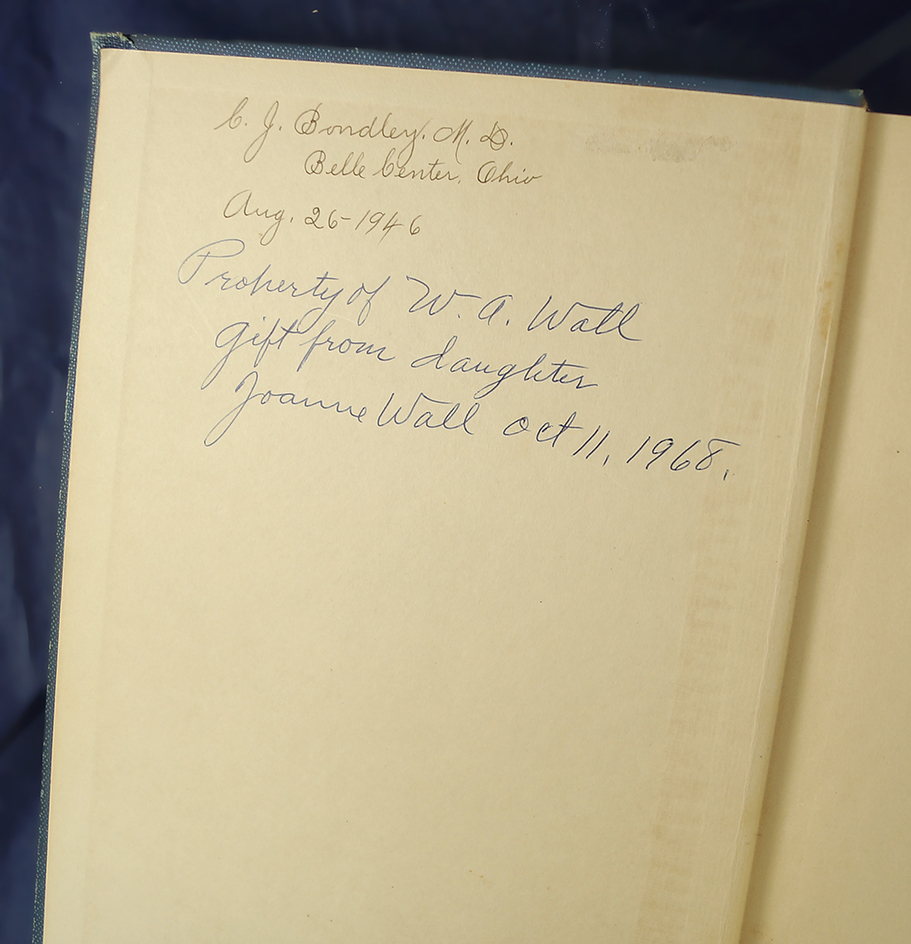 C. J. Bondley, M. D.
Belle Center, Ohio
Aug. 26-1946
Property of W. A. Wall
Gift from daughter
Joanne Wall oct 11, 1968.